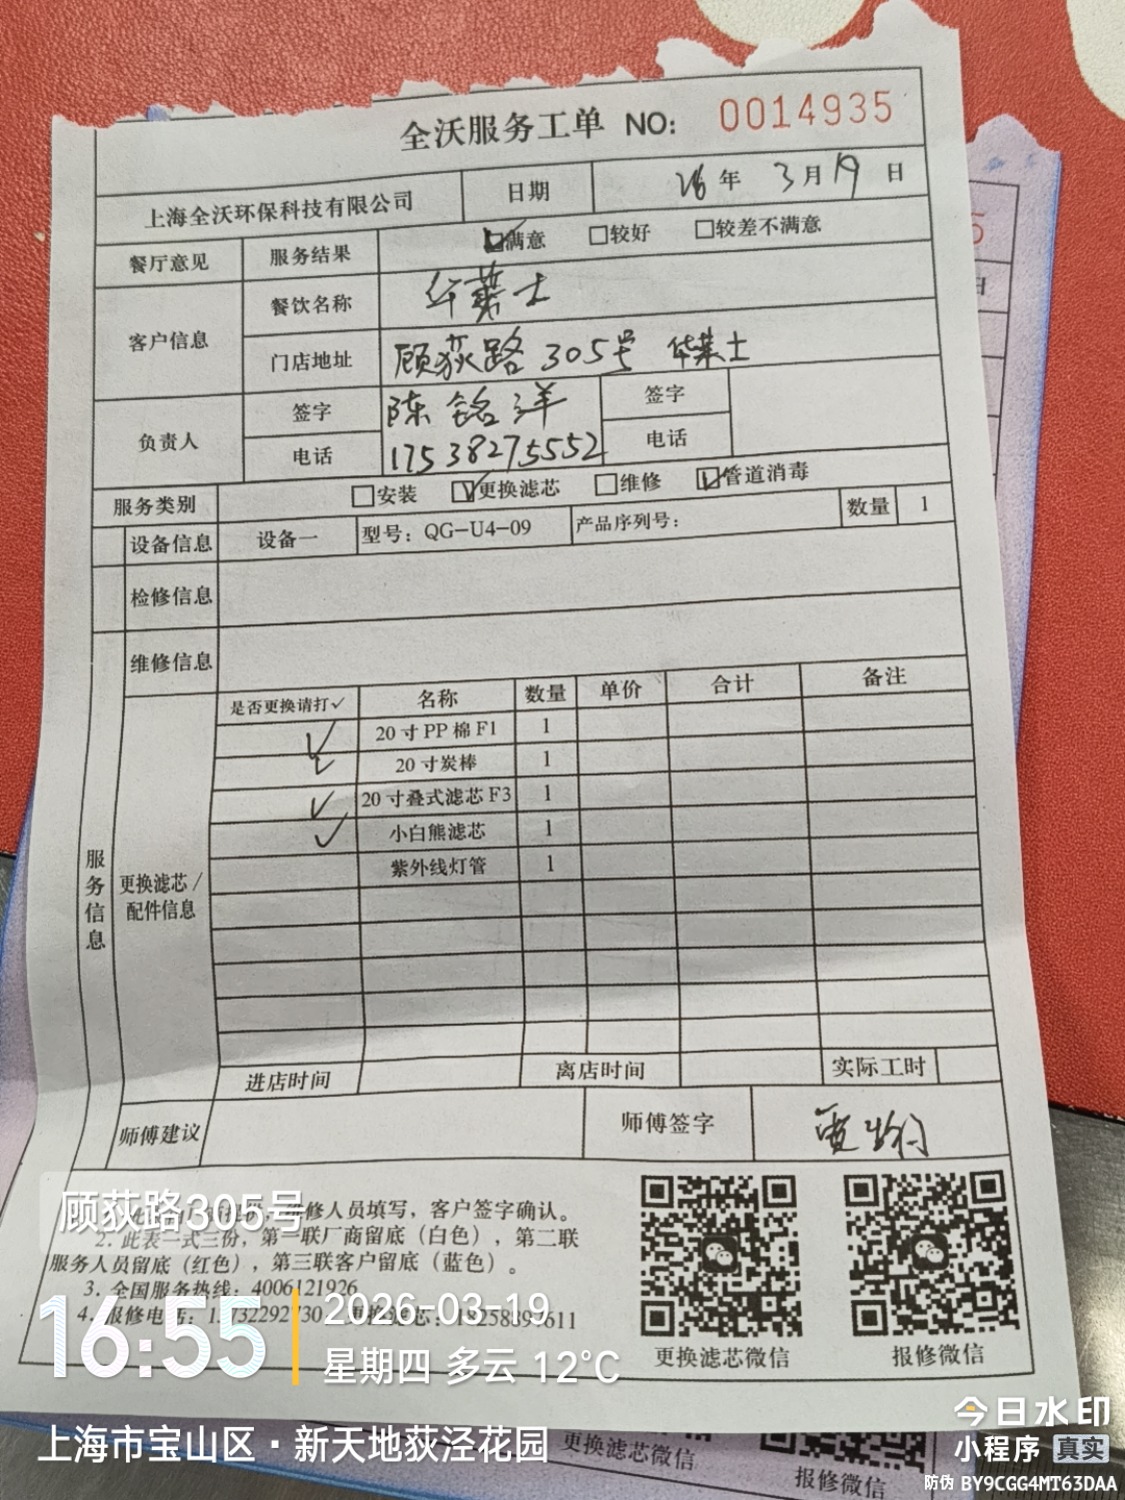 全沃服务工单 NO: 0014935
上海全沃环保科技有限公司 日期 26年 3月19日
餐厅意见 服务结果 ☑满意 □较好 □较差不满意
客户信息 餐饮名称 华莱士
门店地址 顾荻路305号 华莱士
负责人 签字 陈铭洋 签字
电话 17538275552 电话
服务类别 □安装 ☑更换滤芯 □维修 ☑管道消毒
设备信息 设备一 型号: QG-U4-09 产品序列号: 数量 1
检修信息
维修信息
服务信息
更换滤芯/
配件信息
是否更换请打✓ 名称 数量 单价 合计 备注
✓ 20寸PP棉F1 1
✓ 20寸炭棒 1
✓ 20寸叠式滤芯F3 1
✓ 小白熊滤芯 1
紫外线灯管 1
进店时间 离店时间 实际工时
师傅建议 师傅签字
维修人员填写，客户签字确认。
2. 此表一式三份，第一联厂商留底（白色），第二联
服务人员留底（红色），第三联客户留底（蓝色）。
3. 全国服务热线: 4006121926
4. 报修电话:
更换滤芯微信 报修微信
顾荻路305号
16:55 2026-03-19
星期四 多云 12°C
上海市宝山区·新天地荻泾花园
更换滤芯微信 报修微信
今日水印
小程序 真实
防伪 BY9CGG4MT63DAA